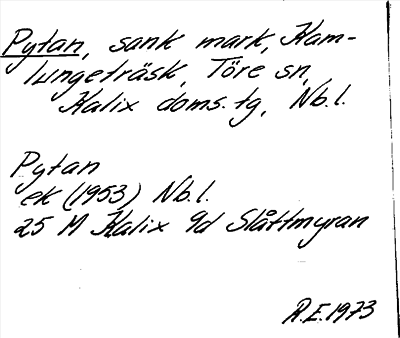 Pytan, sank mark, Kam-
lungeträsk, Töre sn,
Kalix doms.tg, Nb.l.
Pytan
ek (1953) Nb.l.
25 M Kalix 9d Slåttmyran
R.E. 1973